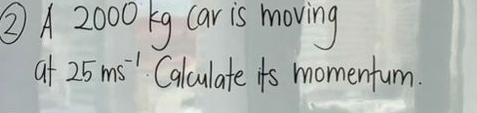 ② A 2000 kg car is moving
at 25 ms⁻¹. Calculate its momentum.